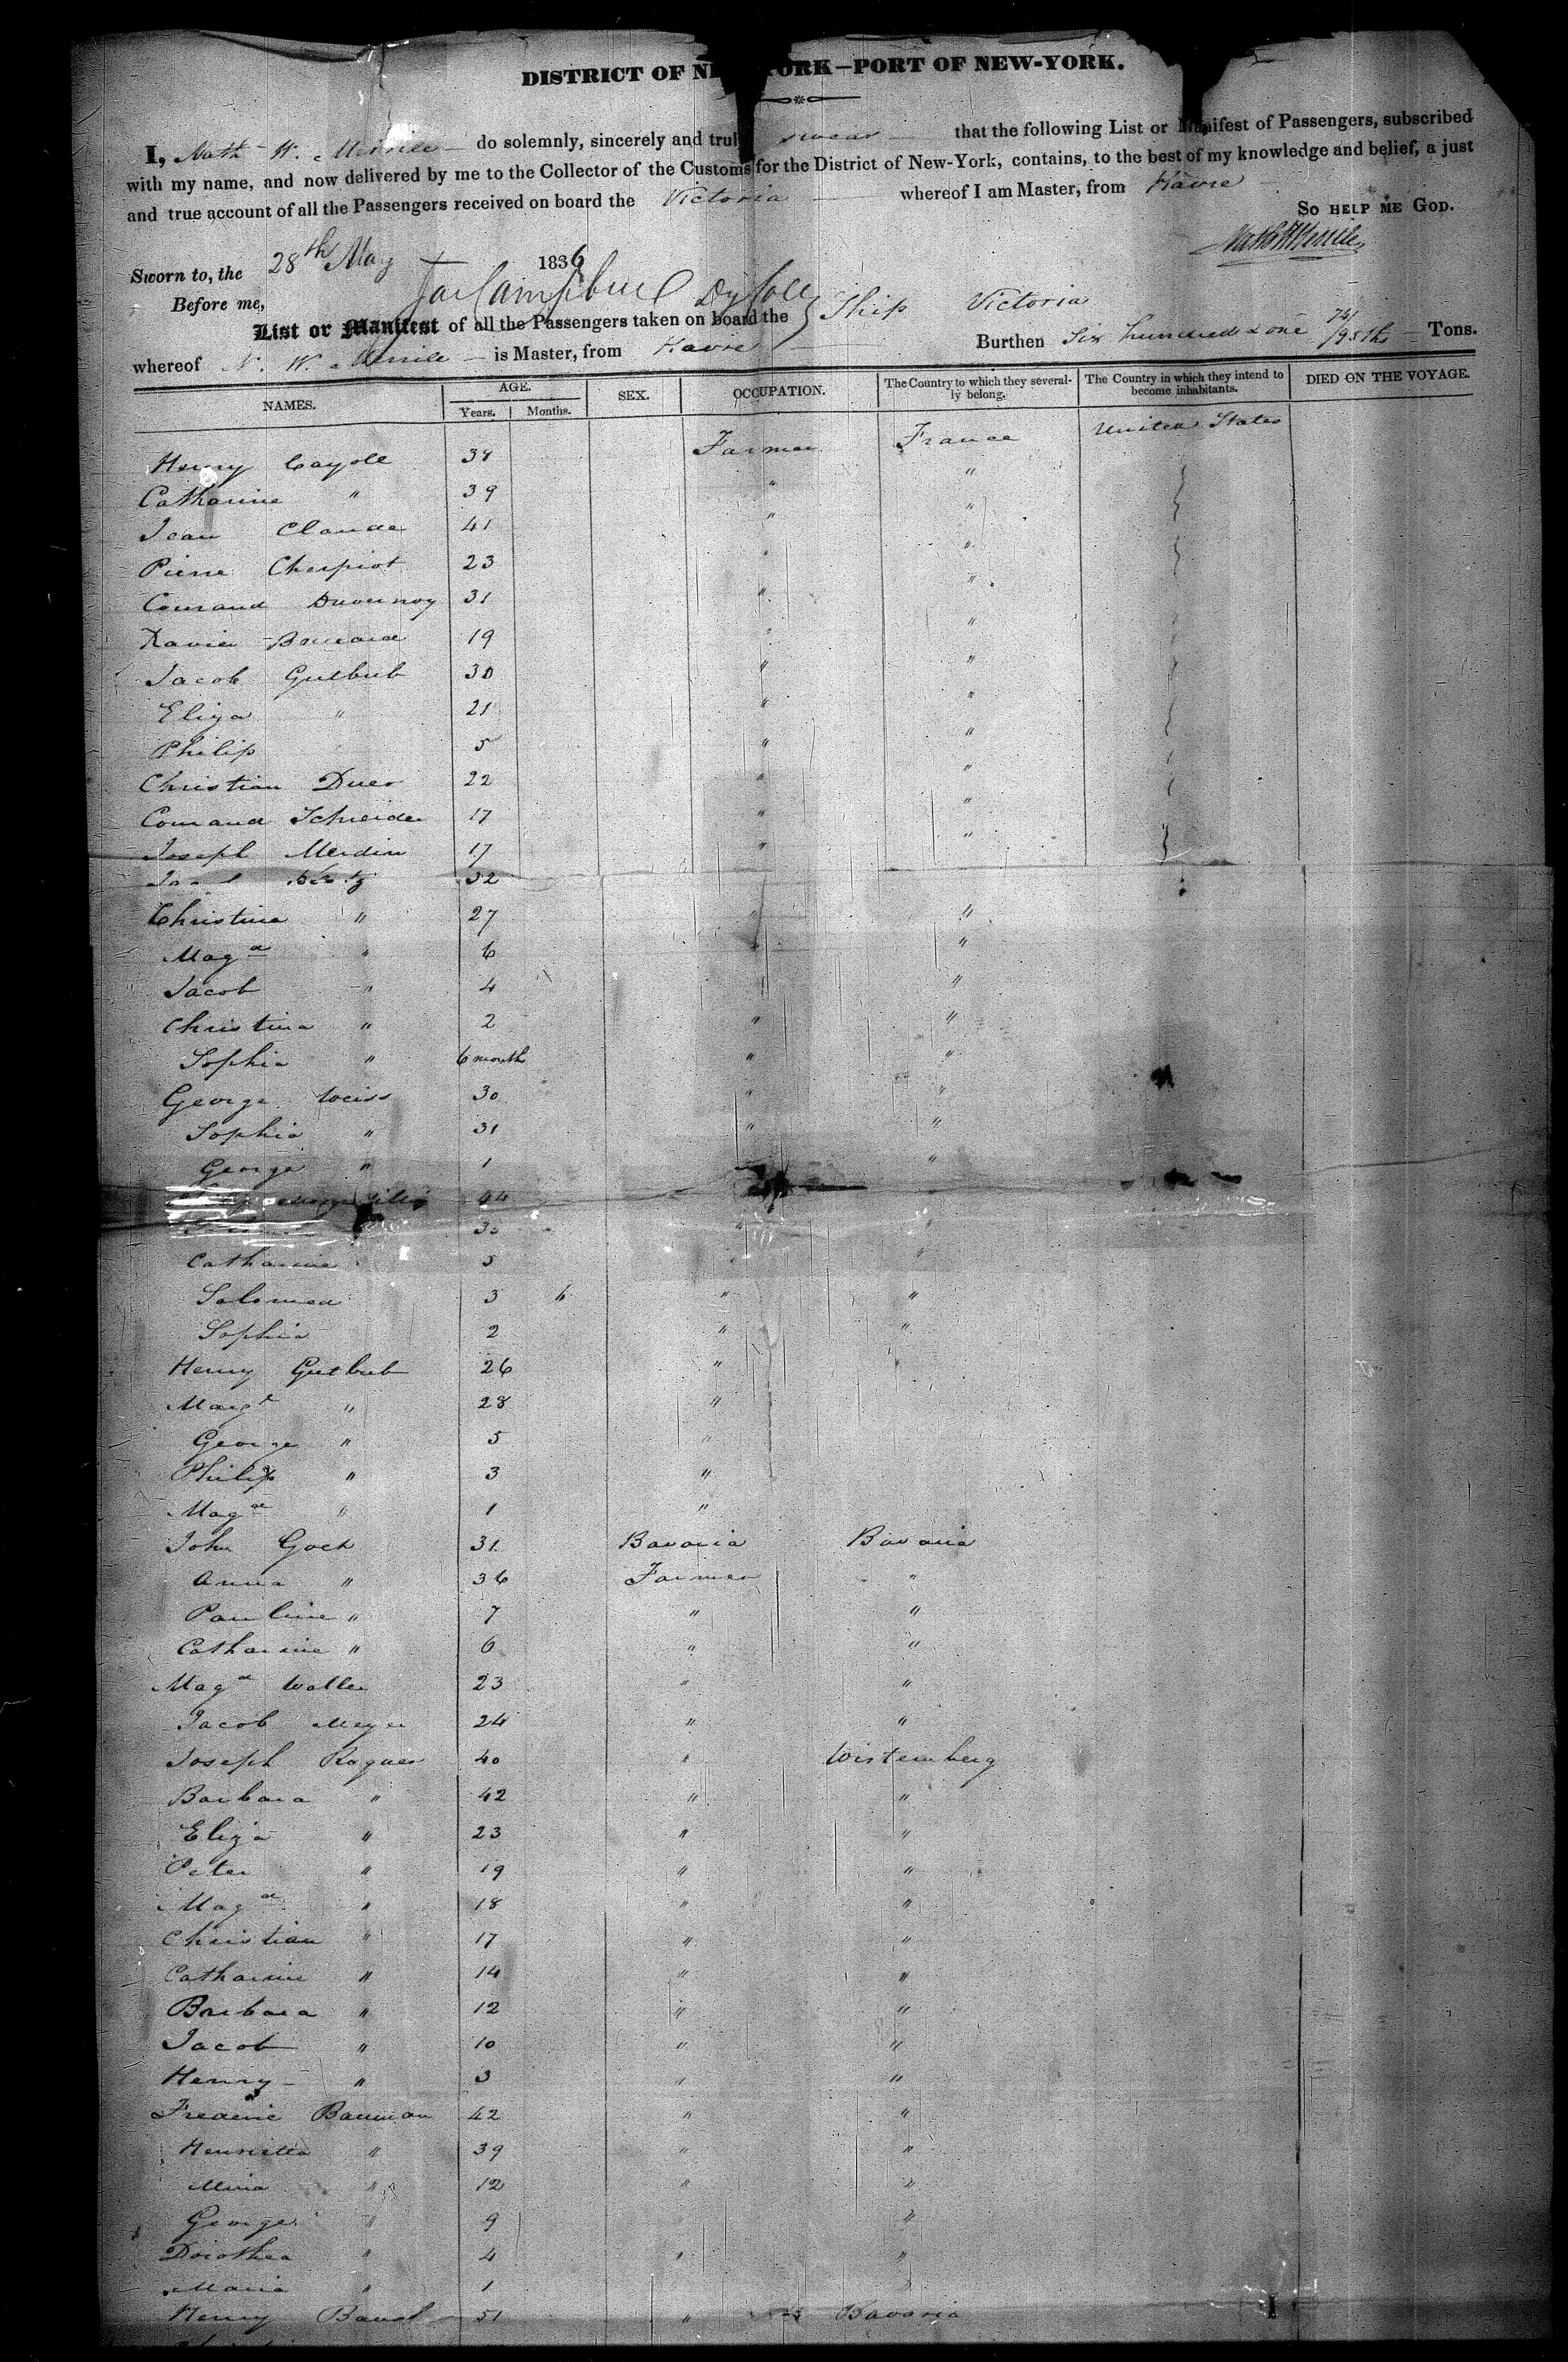 DISTRICT OF NEW YORK—PORT OF NEW-YORK.
I, Nath W. Merrile do solemnly, sincerely and truly swear that the following List or Manifest of Passengers, subscribed
with my name, and now delivered by me to the Collector of the Customs for the District of New-York, contains, to the best of my knowledge and belief, a just
and true account of all the Passengers received on board the Victoria whereof I am Master, from Havre
SO HELP ME GOD.
Sworn to, the 28th May 1836
Before me, Jas Campbell Dy Coll
List or Manifest of all the Passengers taken on board the Ship Victoria
whereof N. W. Merrile is Master, from Havre Burthen Six hundred & one /95ths Tons.
NAMES. AGE. SEX. OCCUPATION. The Country to which they several- The Country in which they intend to DIED ON THE VOYAGE.
Years. Months. ly belong. become inhabitants.
Henry Cayole 38 Farmer France United States
Catharine " 39 " "
Jean Claude 41 " "
Pierre Cherpiot 23 " "
Conraud Duvernoy 31 " "
Xavier 19 " "
Jacob Gutbub 30 " "
Eliza " 21 " "
Philip 5 " "
Christian Duer 22 " "
Conraud Schneider 17 " "
Joseph Merdin 17 " "
32
Christina " 27 " "
Magª " 6 " "
Jacob " 4 " "
Christina " 2 " "
Sophia " 6 month " "
George Weiss 30 " "
Sophia " 31 " "
George " 1 "
44
"
Catharine 5
Salomea 3 6 " "
Sophia 2 " "
Henry Gutbub 26 "
Margt " 28 "
George " 5 "
Philip " 3 "
Magª " 1 "
John Goet 31 Bavaria Bavaria
Anna " 36 Farmer "
Pauline " 7 " "
Catharine " 6 " "
Magª Walter 23 " "
Jacob Meyer 24 " "
Joseph Roguer 40 " Wirtemberg
Barbara " 42 " "
Eliza " 23 " "
Peter " 19 " "
Magª " 18 " "
Christian " 17 " "
Catharine " 14 " "
Barbara " 12 " "
Jacob " 10 " "
Henry " 3 " "
Frederic Bauman 42 " "
Henrietta " 39 " "
Mina " 12 " "
George " 9 "
Dorothea " 4 " "
Maria " 1 "
Henry Baust 51 " Bavaria